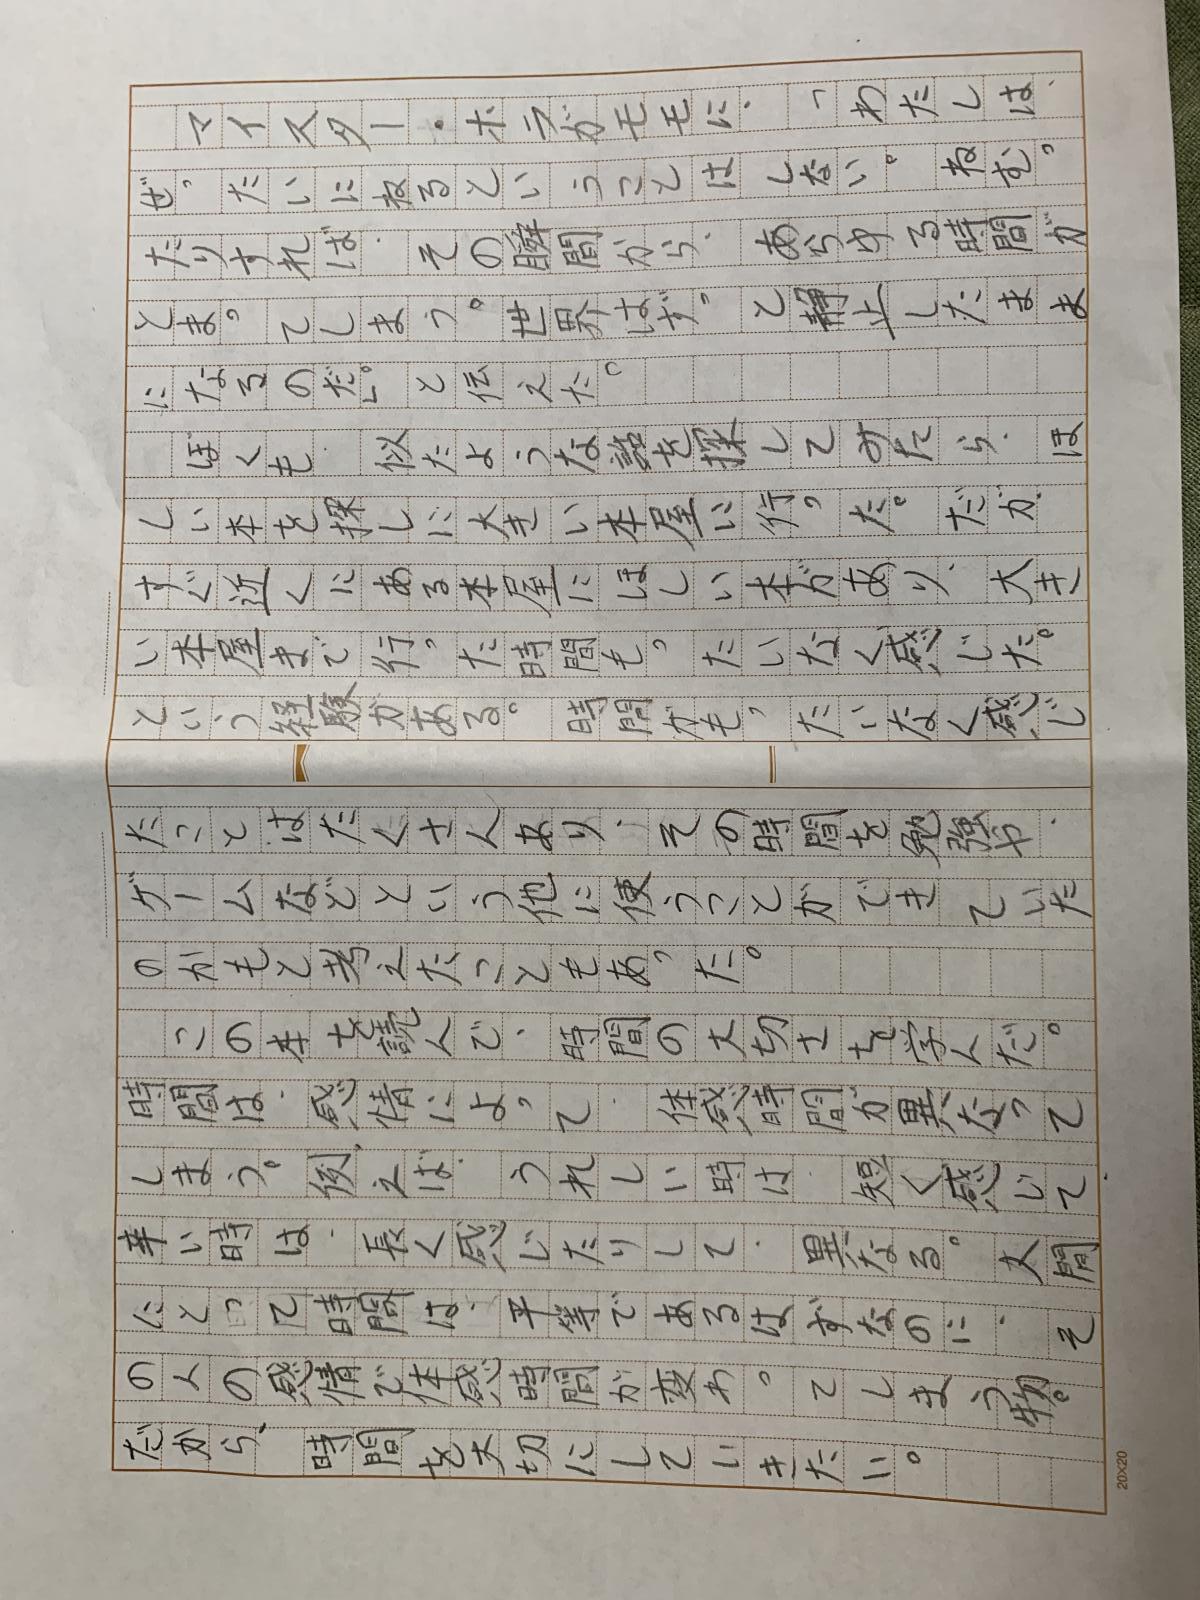 マイスター・ホラがモモに、「わたしは、
ぜったいにねるということはしない。ねむっ
たりすれば、その瞬間から、あらゆる時間が
とまってしまう。世界はずっと静止したまま
になるのだ。」と伝えた。
ぼくも、似たような話を探してみたら、ほ
しい本を探しに大きい本屋に行った。だが、
すぐ近くにある本屋にほしい本があり、大き
い本屋まで行った時間もったいなく感じた。
という経験がある。時間がもったいなく感じ
たことはたくさんあり、その時間を勉強や、
ゲームなどという他に使うことができていた
のかもと考えたこともあった。
この本を読んで、時間の大切さを学んだ。
時間は、感情によって、体感時間が異なって
しまう。例えば、うれしい時は、短く感じて、
辛い時は、長く感じたりして、異なる。人間
にとって時間は、平等であるはずなのに、そ
の人の感情で体感時間が変わってしまう物。
だから、時間を大切にしていきたい。
20×20